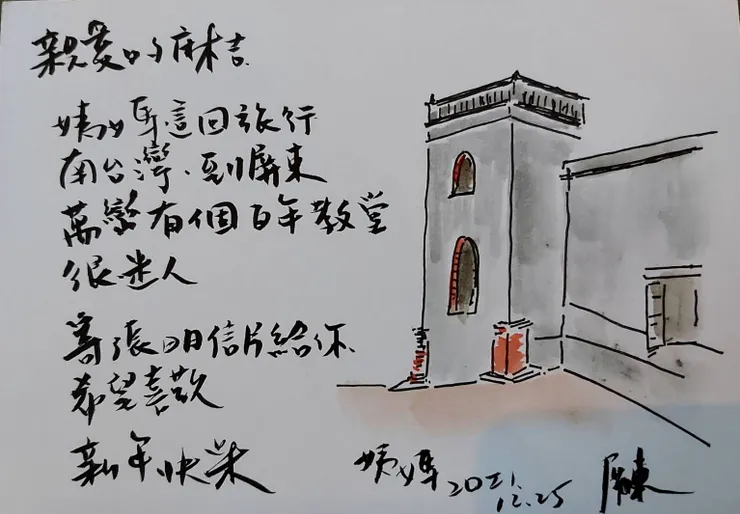 親愛的麻吉
姨婆這回旅行
南台灣、到屏東
萬巒有個百年教堂
很迷人
寄張明信片給你
希望喜歡
新年快樂
姨婆 2021.
12.25
屏東